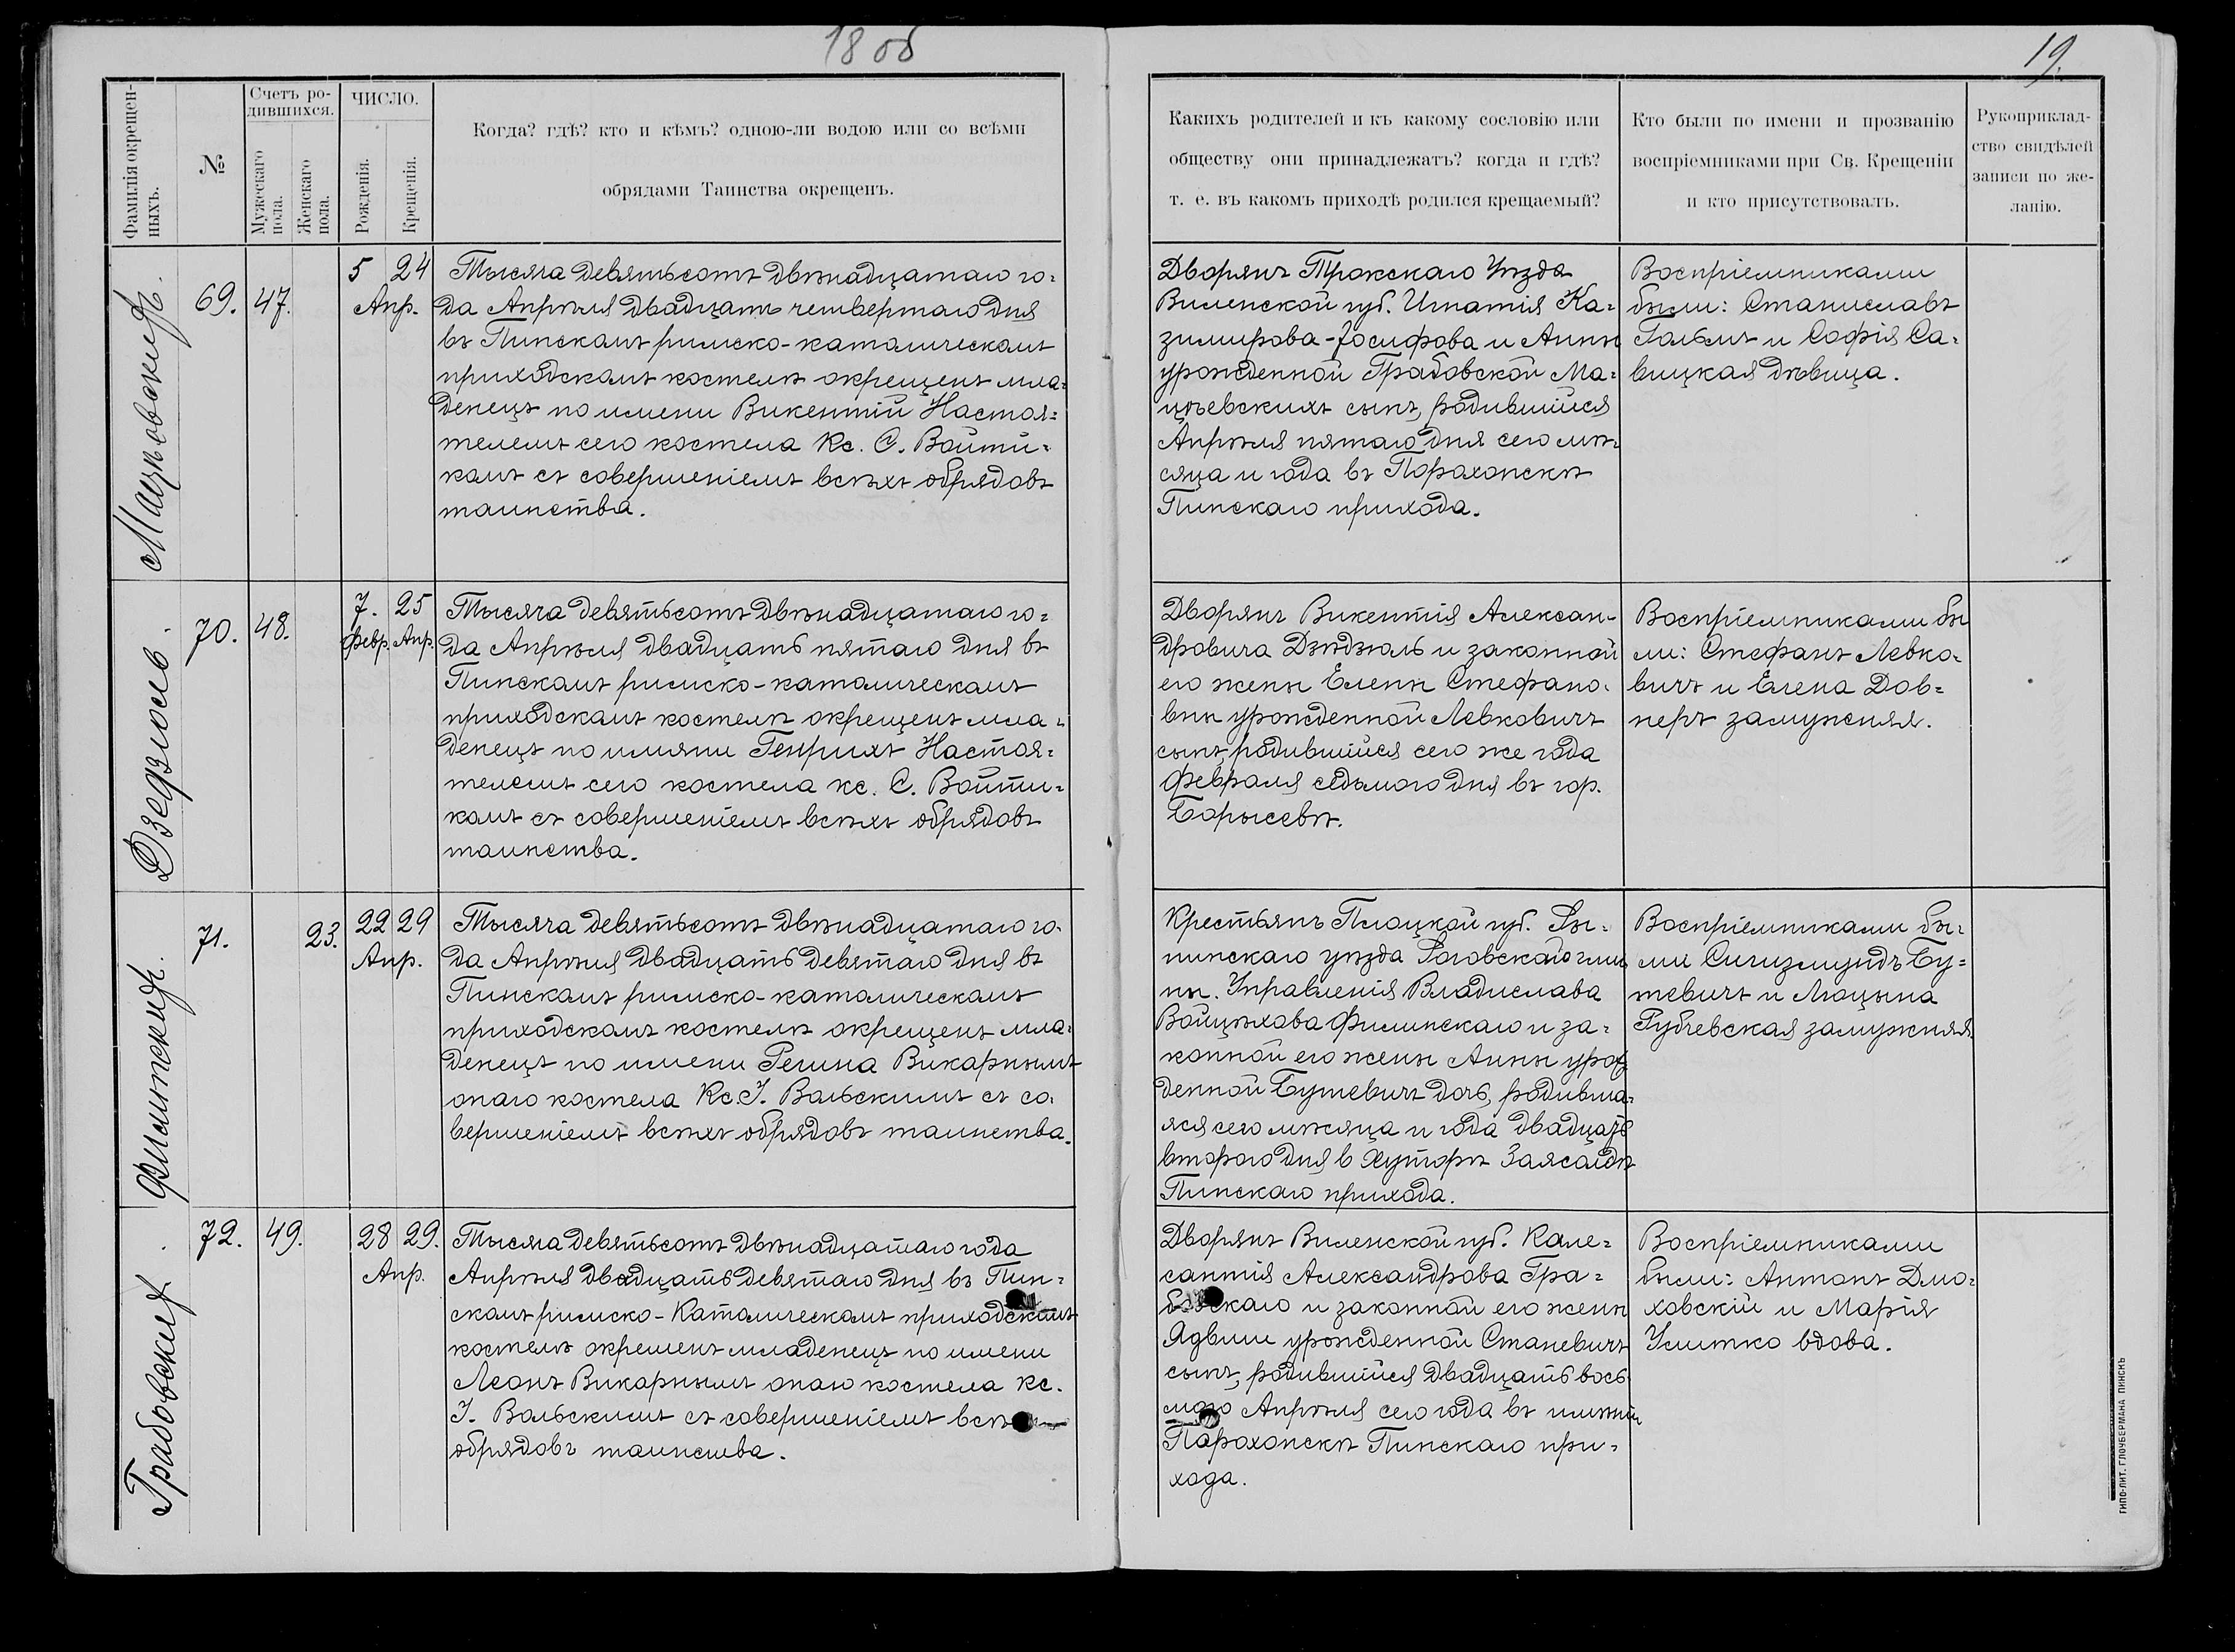 18 об
19.
Фамилія окрещен-
ныхъ.
№
Счетъ ро-
дившихся.
Мужескаго
пола.
Женскаго
пола.
ЧИСЛО.
Рожденія.
Крещенія.
Когда? гдѣ? кто и кѣмъ? одною-ли водою или со всѣми
обрядами Таинства окрещенъ.
Какихъ родителей и къ какому сословію или
обществу они принадлежатъ? когда и гдѣ?
т. е. въ какомъ приходѣ родился крещаемый?
Кто были по имени и прозванію
воспріемниками при Св. Крещеніи
и кто присутствовалъ.
Рукоприклад-
ство свидѣлей
записи по же-
ланію.
69.
47.
5 24
Апр.
Тысяча девятьсотъ двѣнадцатаго го=
да Апрѣля двадцать четвертаго дня
въ Пинскомъ римско-католическомъ
приходскомъ костелѣ окрещенъ мла=
денецъ по имени Викентій Настоя=
телемъ сего костела Кс. С. Войти=
комъ съ совершеніемъ всѣхъ обрядовъ
таинства.
Дворянъ Трокскаго Уѣзда
Виленской губ. Игнатія Ка=
зимирова-Іосифова и Анны
урожденной Грабовской Ма=
цѣевскихъ сынъ, родившійся
Апрѣля пятаго дня сего мѣ=
сяца и года въ Порахонскѣ
Пинскаго прихода.
Воспріемниками
были: Станиславъ
Гольмъ и Софія Са=
вицкая дѣвица.
Дзедзюль.
70.
48.
7. 25
Февр. Апр.
Тысяча девятьсотъ двѣнадцатаго го=
да Апрѣля двадцать пятаго дня въ
Пинскомъ римско-католическомъ
приходскомъ костелѣ окрещенъ мла=
денецъ по имяни Генрихъ Настоя=
телемъ сего костела кс. С. Войти=
комъ съ совершеніемъ всѣхъ обрядовъ
таинства.
Дворянъ Викентія Алексан-
дровича Дзѣдзюль и законной
его жены Елены Стефано=
вны урожденной Левковичъ
сынъ, родившійся сего же года
Февраля седьмого дня въ гор.
Борысевѣ.
Воспріемниками бы
ли: Стефанъ Левко=
вичъ и Елена Дов=
неръ замужняя.
71.
23.
22 29
Апр.
Тысяча девятьсотъ двѣнадцатаго го=
да Апрѣля двадцать девятаго дня въ
Пинскомъ римско-католическомъ
приходскомъ костелѣ окрещенъ мла=
денецъ по имени Регина Викарнымъ
онаго костела Кс. І. Вольскимъ съ со=
вершеніемъ всѣхъ обрядовъ таинства.
Крестьянъ Плоцкой губ. Ры=
пинскаго уѣзда Роговскаго гми
ны. Управленія Владислава
Войцѣхова Филипскаго и за=
конной его жены Анны урож
денной Бутевичъ дочь, родивша=
яся сего мѣсяца и года двадцать
второго дня в Хуторѣ Заясолдѣ
Пинскаго прихода.
Воспріемниками бы=
ли Сигизмундъ Бу=
тевичъ и Люцына
Рубчевская замужняя.
Грабовскій.
72.
49.
28 29.
Апр.
Тысяча девятьсотъ двѣнадцатаго года
Апрѣля двадцать девятаго дня въ Пин=
скомъ римско-Католическомъ приходскомъ
костелѣ окрещенъ младенецъ по имени
Леонъ Викарнымъ онаго костела кс.
І. Вольскимъ съ совершеніемъ всѣ
обрядовъ таинства.
Дворянъ Виленской губ. Кале=
сантія Александрова Гра=
бовскаго и законной его жены
Ядвиги урожденной Станевичъ
сынъ, родившійся двадцать вось
мого Апрѣля сего года въ имѣніи
Порохонскѣ Пинскаго при=
хода.
Воспріемниками
были: Антонъ Дмо=
ховскій и Марія
Улитко вдова.
ТИПО-ЛИТ. ГЛОУБЕРМАНА ПИНСКЪ